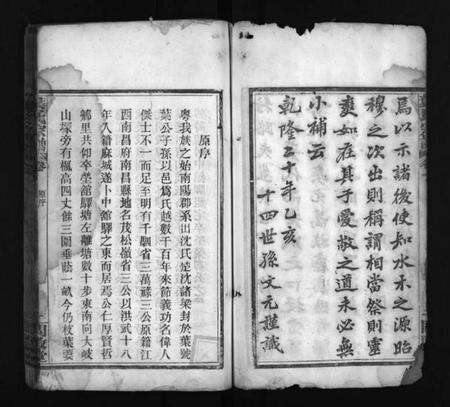 焉以示諸後使知水木之源昭
穆之次出則稱謂相當祭則靈
爽如在其于愛敬之道未必無
小補云
乾隆二十年乙亥
十四世孫文元謹識
原序
粵我族之始南陽郡系出沈氏楚沈諸梁封於葉號
葉公子孫以邑爲氏越數千百年來節義功名偉人
傑士不一而足至明有千駟省三萬祿三公原籍江
西南昌府南昌縣地名茂松嶺省三公以洪武十八
年入籍麻城遂卜中舘驛之東而居焉公仁厚賢哲
鄉里共仰卒塋舘驛塘左離塘數十步東南向大岐
山塚旁有楓高四丈餘三圍垂蔭一畝今仍枝葉蓁
原序